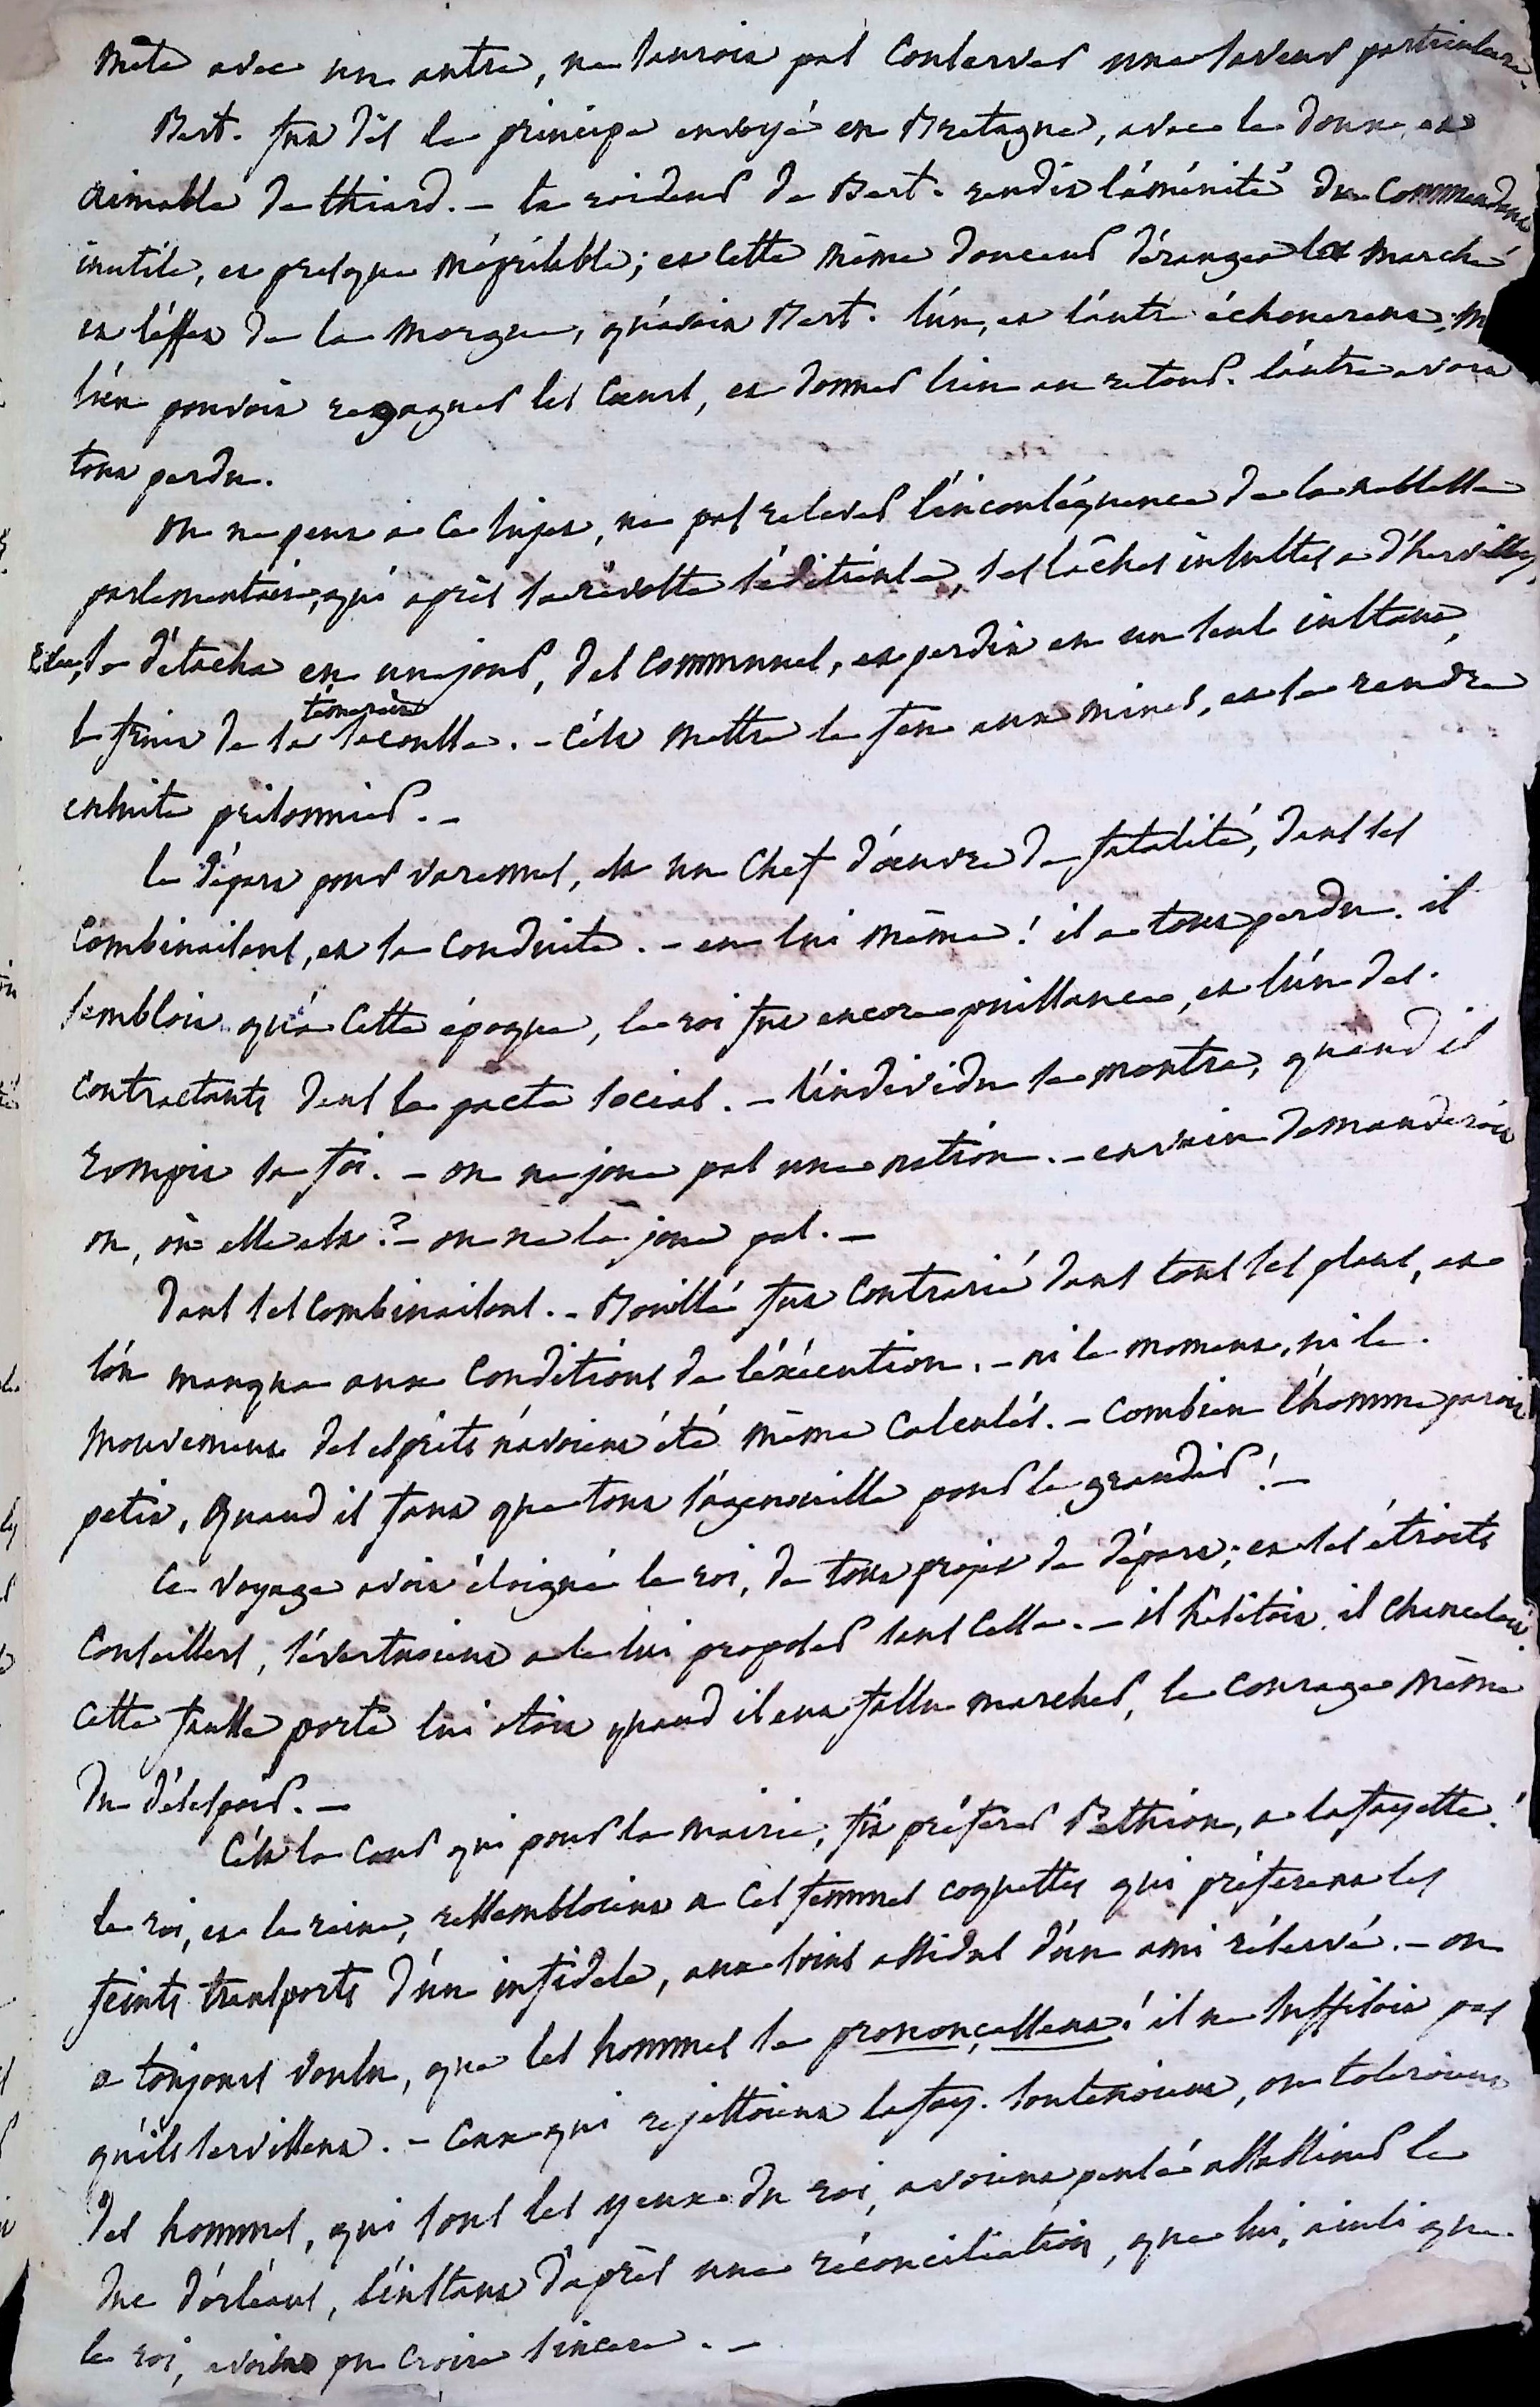 mêlé avec un autre, ne sauroit pas conserver une saveur particulière.
Bert. fut dès le principe envoyé en Bretagne, avec le doux, et
aimable de thiard. - la roideur de Bert. rendit l'aménité du Commandant
inutile, et presque méprisable; et cette même douceur dérangea la marche
et l'effet de la morgue, qu'avoit Bert. l'un, et l'autre échouerent,
l'un pouvoit regagner les cœurs, et donner lieu au retour. l'autre avoit
tout perdu.
On ne peut a ce sujet, ne pas relever l'inconséquence de la noblesse
parlementaire, qui après sa révolte séditieuse, ses lâches insultes a d'hervilly,
se détacha en un jour, des communes, et perdit en un seul instant,
le fruit de sa téméraire secousse. - C'est mettre le feu aux mines, et se rendre
ensuite prisonnier. -
le départ pour varennes, est un Chef d'œuvre de fatalité, dans ses
combinaisons, et sa conduite. - en lui même! il a tout perdu. il
sembloit qu'à cette époque, le roi fut encore puissance, et l'un des
contractants dans le pacte social. - l'individu se montra, quand il
rompit sa foi. - on ne joue pas une nation. - en vain demanderoit
on, où elle est? - on ne la joue pas. -
dans ses combinaisons. - Bouillé fut contrarié dans tous ses plans, et
l'on manqua aux conditions de l'éxécution. - ni le moment, ni le
mouvement des esprits n'avoient été même calculés. - Combien l'homme paroit
petit, quand il faut que tout s'agenouille pour le grandir! -
Ce voyage avoit éloigné le roi, de tout projet de départ; et ses étroits
conseillers, s'évertuoient a le lui proposer sans cesse. - il hésitoit, il chanceloit.
cette fausse porte lui otoit quand il eut fallu marcher, le courage même
du désespoir. -
C'est la Cour qui pour la mairie, fit préférer Pethion, a lafayette!
le roi, et la reine, ressembloient a ces femmes coquettes qui préferent les
feints transports d'un infidele, aux soins assidus d'un ami réservé. - on
a toujours voulu, que les hommes se prononçassent! il ne suffisoit pas
qu'ils servissent. - Ceux qui rejettoient lafay. soutenoient, ou toleroient
des hommes, qui sous les yeux du roi, avoient pensé assassiner le
duc d'orléans, l'instant d'après une réconciliation, que lui, ainsi que
le roi, avoient pu croire sincere. -